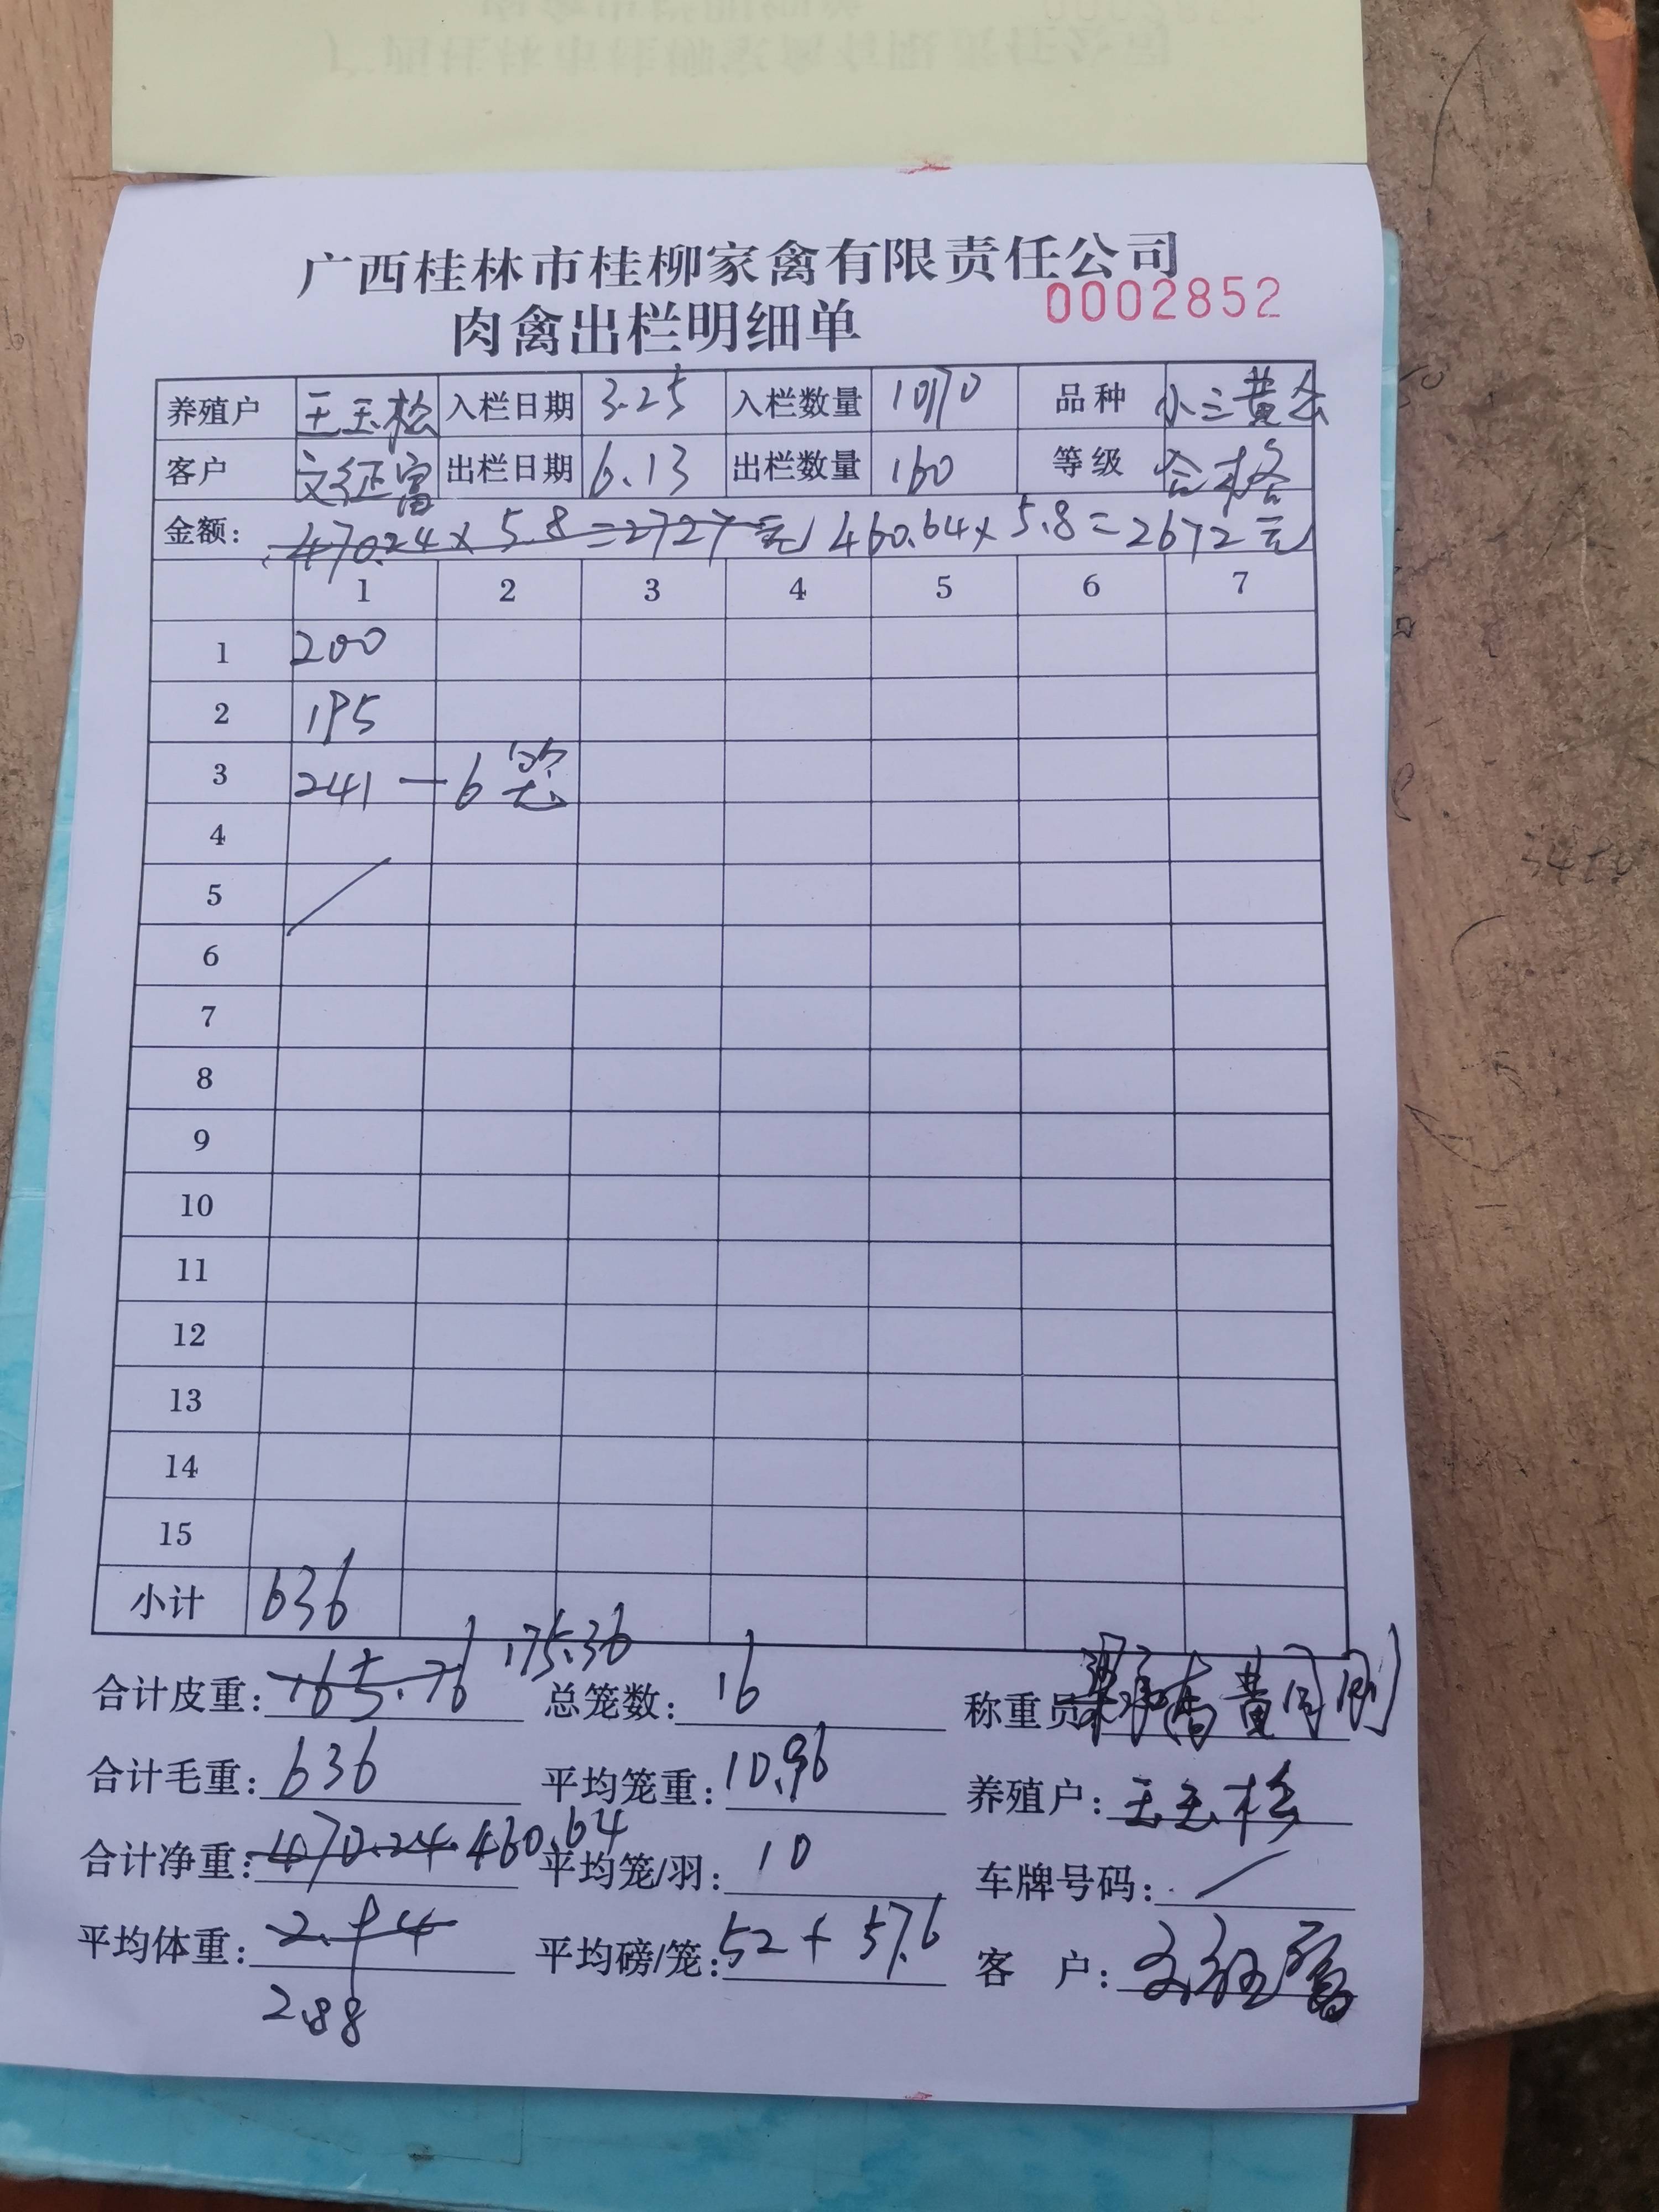 广西桂林市桂柳家禽有限责任公司
肉禽出栏明细单 0002852
养殖户 王玉松 入栏日期 3.25 入栏数量 品种 小三黄公
客户 文征富 出栏日期 6.13 出栏数量 160 等级 合格
金额: 470.24 x 5.8 = 2727元 460.64 x 5.8 = 2672元
1 2 3 4 5 6 7
1 200
2 195
3 241 — 6笼
4
5
6
7
8
9
10
11
12
13
14
15
小计 636
合计皮重: 165.76 175.36 总笼数: 16 称重员: 黄同刚
合计毛重: 636 平均笼重: 10.96 养殖户: 王玉松
合计净重: 470.24 460.64 平均笼/羽: 10 车牌号码: /
平均体重: 2.94 平均磅/笼: 52 + 57.6 客 户: 文征富
2.88